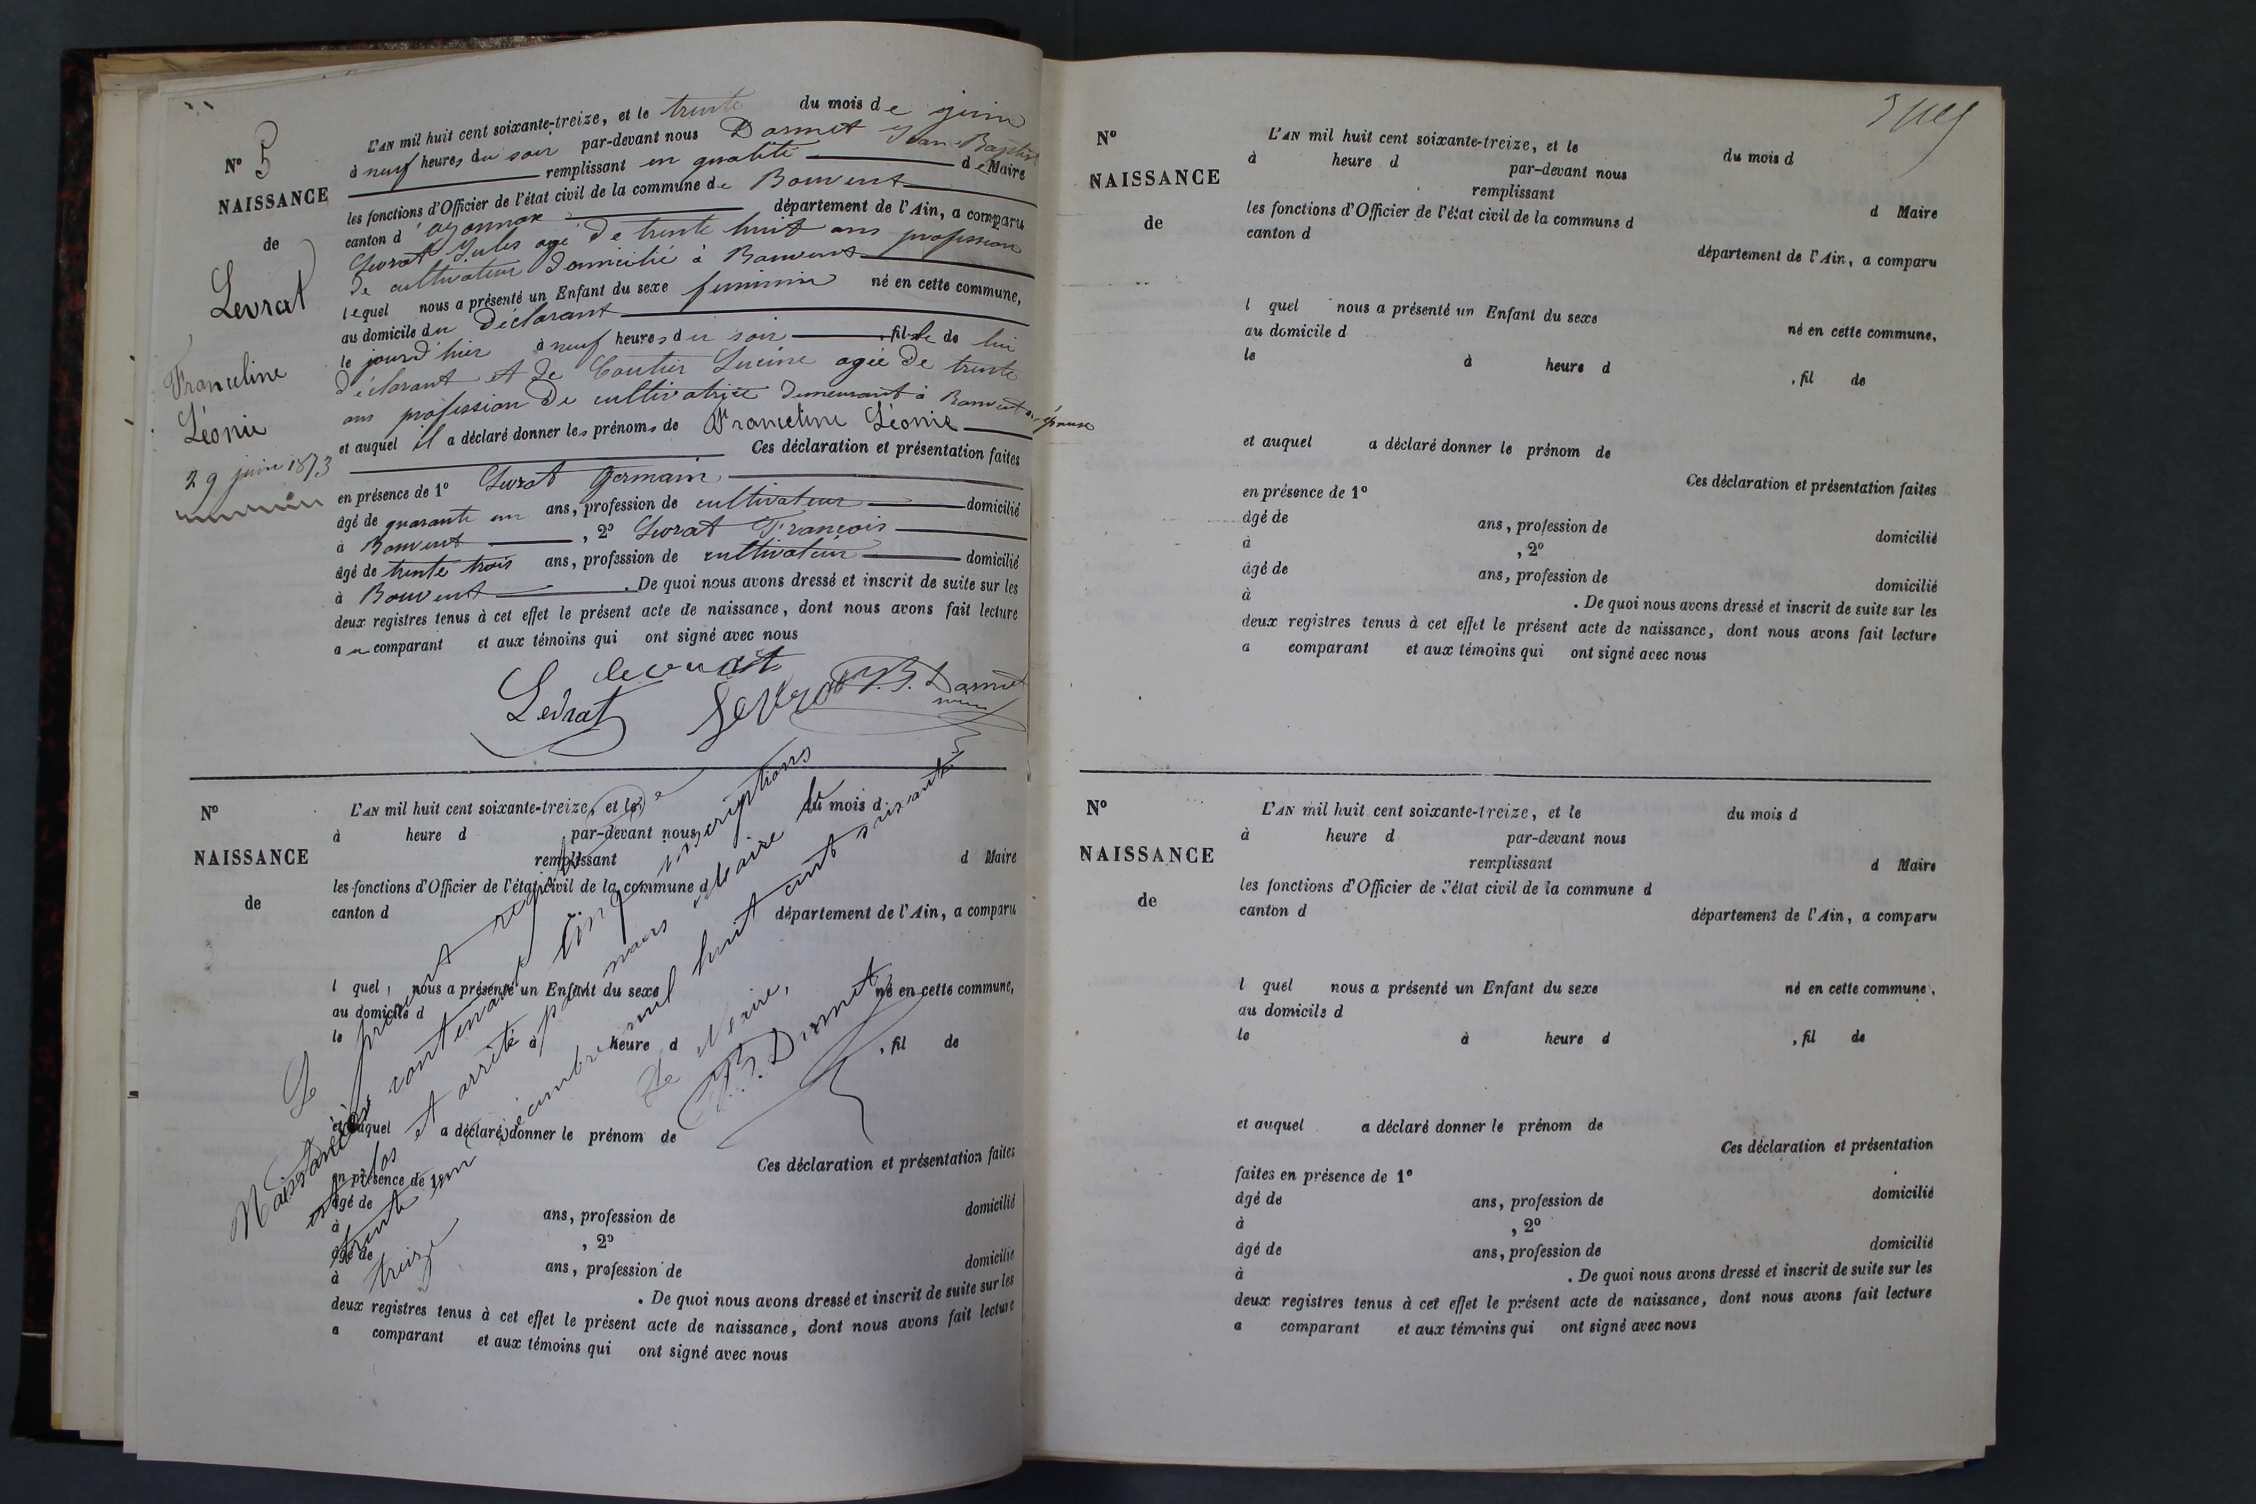 N° 5
NAISSANCE
de
Levrat
Franceline
Léonie
29 juin 1873
L'AN mil huit cent soixante-treize, et le trente du mois de juin
à neuf heures du soir par-devant nous Darmet Jean Baptiste
remplissant en qualité de Maire
les fonctions d'Officier de l'état civil de la commune de Bouvent
canton d'oyonnax département de l'Ain, a comparu
Levrat Jules agé de trente huit ans profession
de cultivateur domicilié à Bouvent
lequel nous a présenté un Enfant du sexe feminin né en cette commune,
au domicile du déclarant
le jour d'hier à neuf heures du soir , fille de lui
déclarant et de Coutier Lucine agée de trente
ans profession de cultivatrice demeurant à Bouvent son épouse
et auquel il a déclaré donner les prénoms de Franceline Léonie
Ces déclaration et présentation faites
en présence de 1° Levrat Germain
âgé de quarante un ans, profession de cultivateur domicilié
à Bouvent , 2° Levrat François
âgé de trente trois ans, profession de cultivateur domicilié
à Bouvent . De quoi nous avons dressé et inscrit de suite sur les
deux registres tenus à cet effet le présent acte de naissance, dont nous avons fait lecture
au comparant et aux témoins qui ont signé avec nous
levrat
Levrat Levrat J.B. Darmet
N°
NAISSANCE
de
L'AN mil huit cent soixante-treize, et le du mois d
à heure d par-devant nous
remplissant d Maire
les fonctions d'Officier de l'état civil de la commune d
canton d département de l'Ain, a comparu
l quel nous a présenté un Enfant du sexe né en cette commune,
au domicile d
le à heure d , fil de
et auquel a déclaré donner le prénom de
Ces déclaration et présentation faites
en présence de 1°
âgé de ans, profession de domicilié
à , 2°
âgé de ans, profession de domicilié
à . De quoi nous avons dressé et inscrit de suite sur les
deux registres tenus à cet effet le présent acte de naissance, dont nous avons fait lecture
a comparant et aux témoins qui ont signé avec nous
Le présent registre de
Naissances contenant cinq inscriptions
est clos et arrêté par nous Maire le
trente un décembre mil huit cent soixante
treize
Le Maire,
J.B. Darmet
N°
NAISSANCE
de
L'AN mil huit cent soixante-treize, et le du mois d
à heure d par-devant nous
remplissant d Maire
les fonctions d'Officier de l'état civil de la commune d
canton d département de l'Ain, a comparu
l quel nous a présenté un Enfant du sexe né en cette commune,
au domicile d
le à heure d , fil de
et auquel a déclaré donner le prénom de
Ces déclaration et présentation faites
en présence de 1°
âgé de ans, profession de domicilié
à , 2°
âgé de ans, profession de domicilié
à . De quoi nous avons dressé et inscrit de suite sur les
deux registres tenus à cet effet le présent acte de naissance, dont nous avons fait lecture
a comparant et aux témoins qui ont signé avec nous
N°
NAISSANCE
de
L'AN mil huit cent soixante-treize, et le du mois d
à heure d par-devant nous
remplissant d Maire
les fonctions d'Officier de l'état civil de la commune d
canton d département de l'Ain, a comparu
l quel nous a présenté un Enfant du sexe né en cette commune,
au domicile d
le à heure d , fil de
et auquel a déclaré donner le prénom de
Ces déclaration et présentation
faites en présence de 1°
âgé de ans, profession de domicilié
à , 2°
âgé de ans, profession de domicilié
à . De quoi nous avons dressé et inscrit de suite sur les
deux registres tenus à cet effet le présent acte de naissance, dont nous avons fait lecture
a comparant et aux témoins qui ont signé avec nous